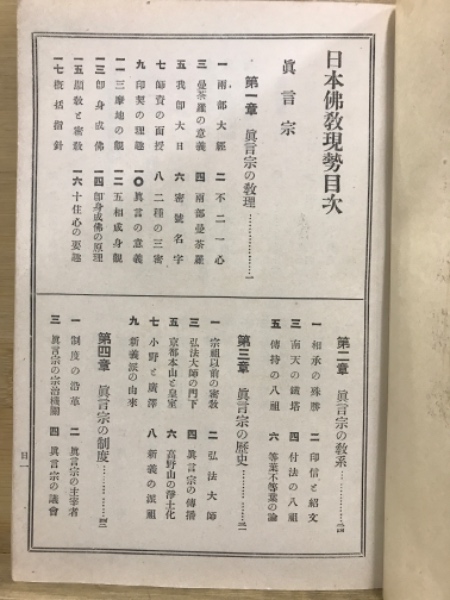 日本佛敎現勢目次
眞言宗
第一章　眞言宗の敎理…………一
一　兩部大經　二　不二一心
三　曼荼羅の意義　四　兩部曼荼羅
五　我卽大日　六　密號名字
七　師資の面授　八　二種の三密
九　印契の理趣　一〇　眞言の意義
一一　三摩地の觀　一二　五相成身觀
一三　卽身成佛　一四　卽身成佛の原理
一五　顯敎と密敎　一六　十住心の要趣
一七　槪括指針
第二章　眞言宗の敎系
一　相承の殊勝　二　印信と紹文
三　南天の鐵塔　四　付法の八祖
五　傳持の八祖　六　等葉不等葉の論
第三章　眞言宗の歷史
一　宗祖以前の密敎　二　弘法大師
三　弘法大師の門下　四　眞言宗の傳播
五　京都本山と皇室　六　高野山の淨土化
七　小野と廣澤　八　新義の派祖
九　新義派の由來
第四章　眞言宗の制度
一　制度の沿革　二　眞言宗の主宰者
三　眞言宗の宗治機關　四　眞言宗の議會
目一